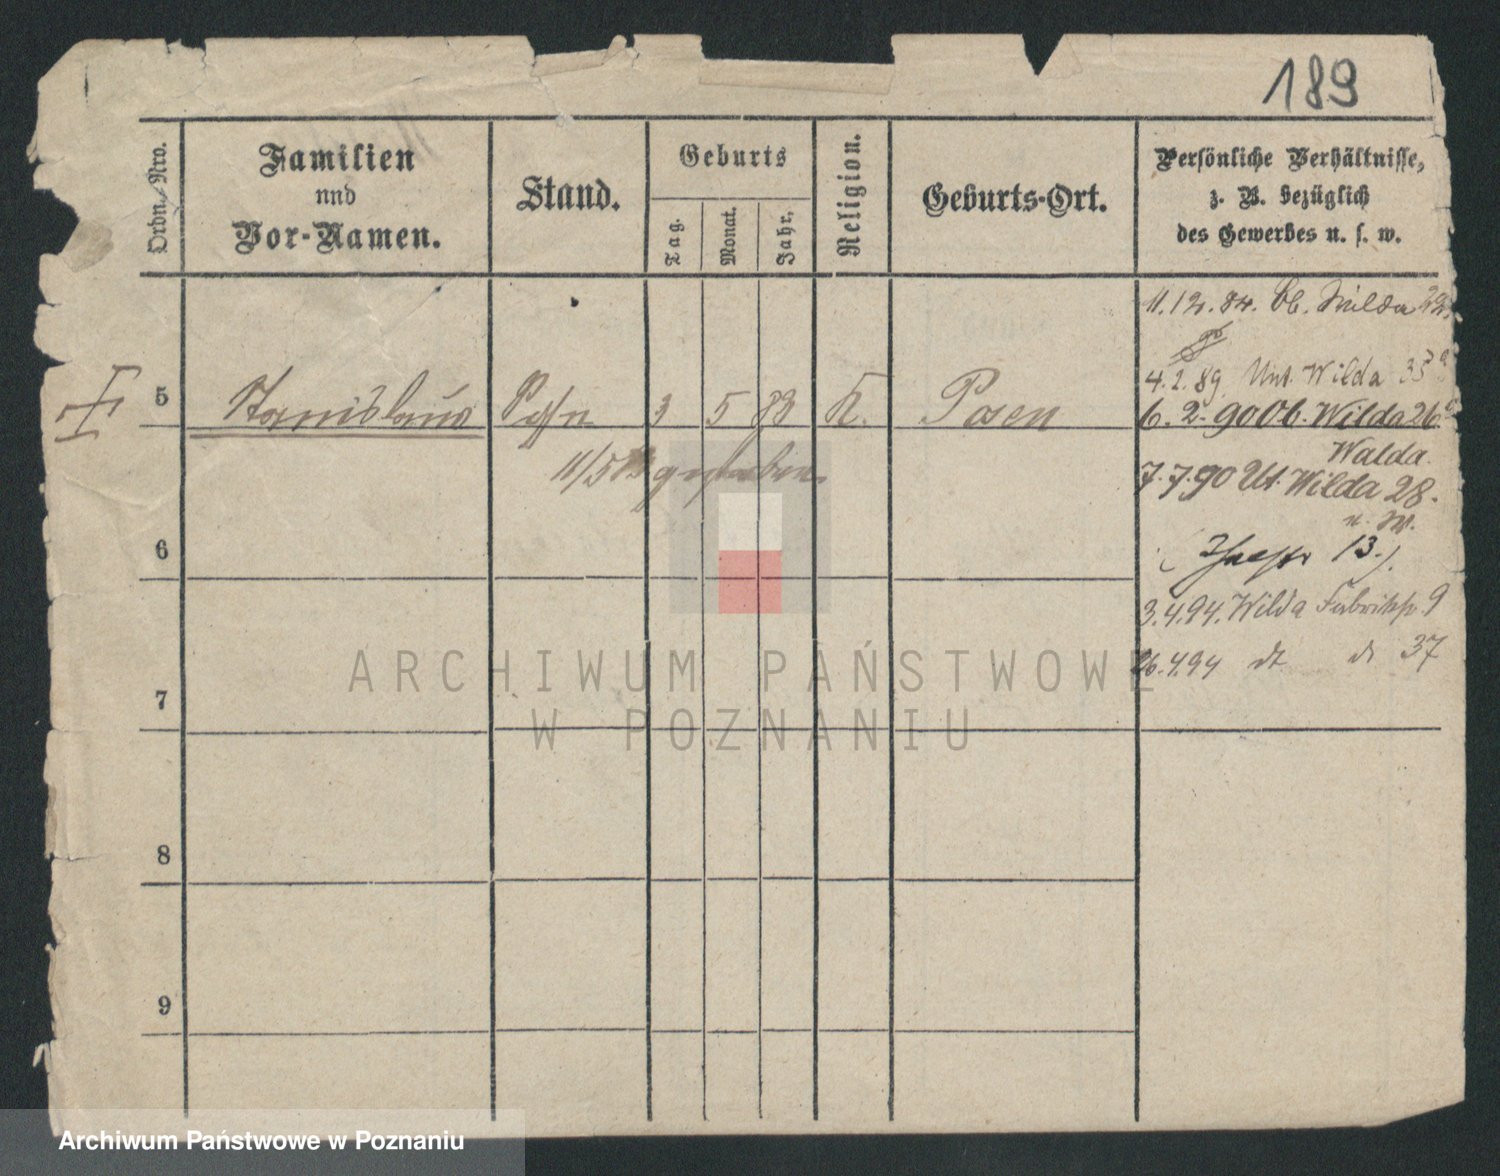 189
Ordn.-Nro.
Familien
und
Vor-Namen.
Stand.
Geburts
Tag.
Monat.
Jahr.
Religion.
Geburts-Ort.
Persönliche Verhältnisse,
z. B. bezüglich
des Gewerbes u. s. w.
11.12.84. Ob. Wilda 22.
4.2.89 Unt. Wilda 35
5 Stanislaus Sohn 3 5 83 K. Posen
6.2.90 Ob. Wilda 26
11/5 83 gestorben
Walda
7.7.90 Ut. Wilda 28.
6
13.)
3.4.94. Wilda Fabrikstr. 9
26.4.94 dt do 37
7
8
9
ARCHIWUM PAŃSTWOWE
W POZNANIU
Archiwum Państwowe w Poznaniu